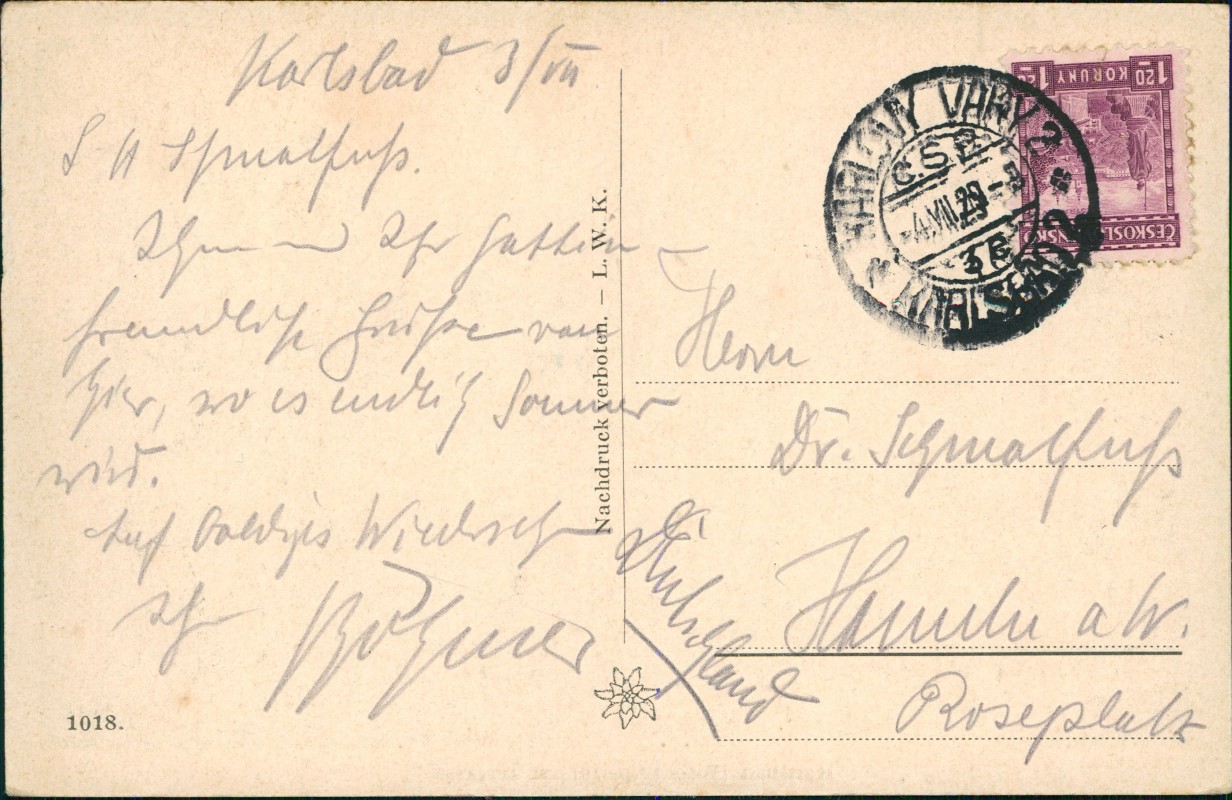 Karlsbad 3/VII
L H Schmalfuß.
Ihnen und Ihr Gattin
freundliche Grüße von
hier, wo es endlich Sommer
wird.
Auf baldiges Wiedersehn
Ihr Böhmer
1018.
Nachdruck verboten. – L. W. K.
1·20 KORUNY 1·20
ČESKOSLOVENSKO
KARLOVY VARY 2
Č.S.R.
4.VII.29
3B
KARLSBAD 2
Herrn
Dr. Schmalfuß
Hameln a W.
Deutschland
Roseplatz